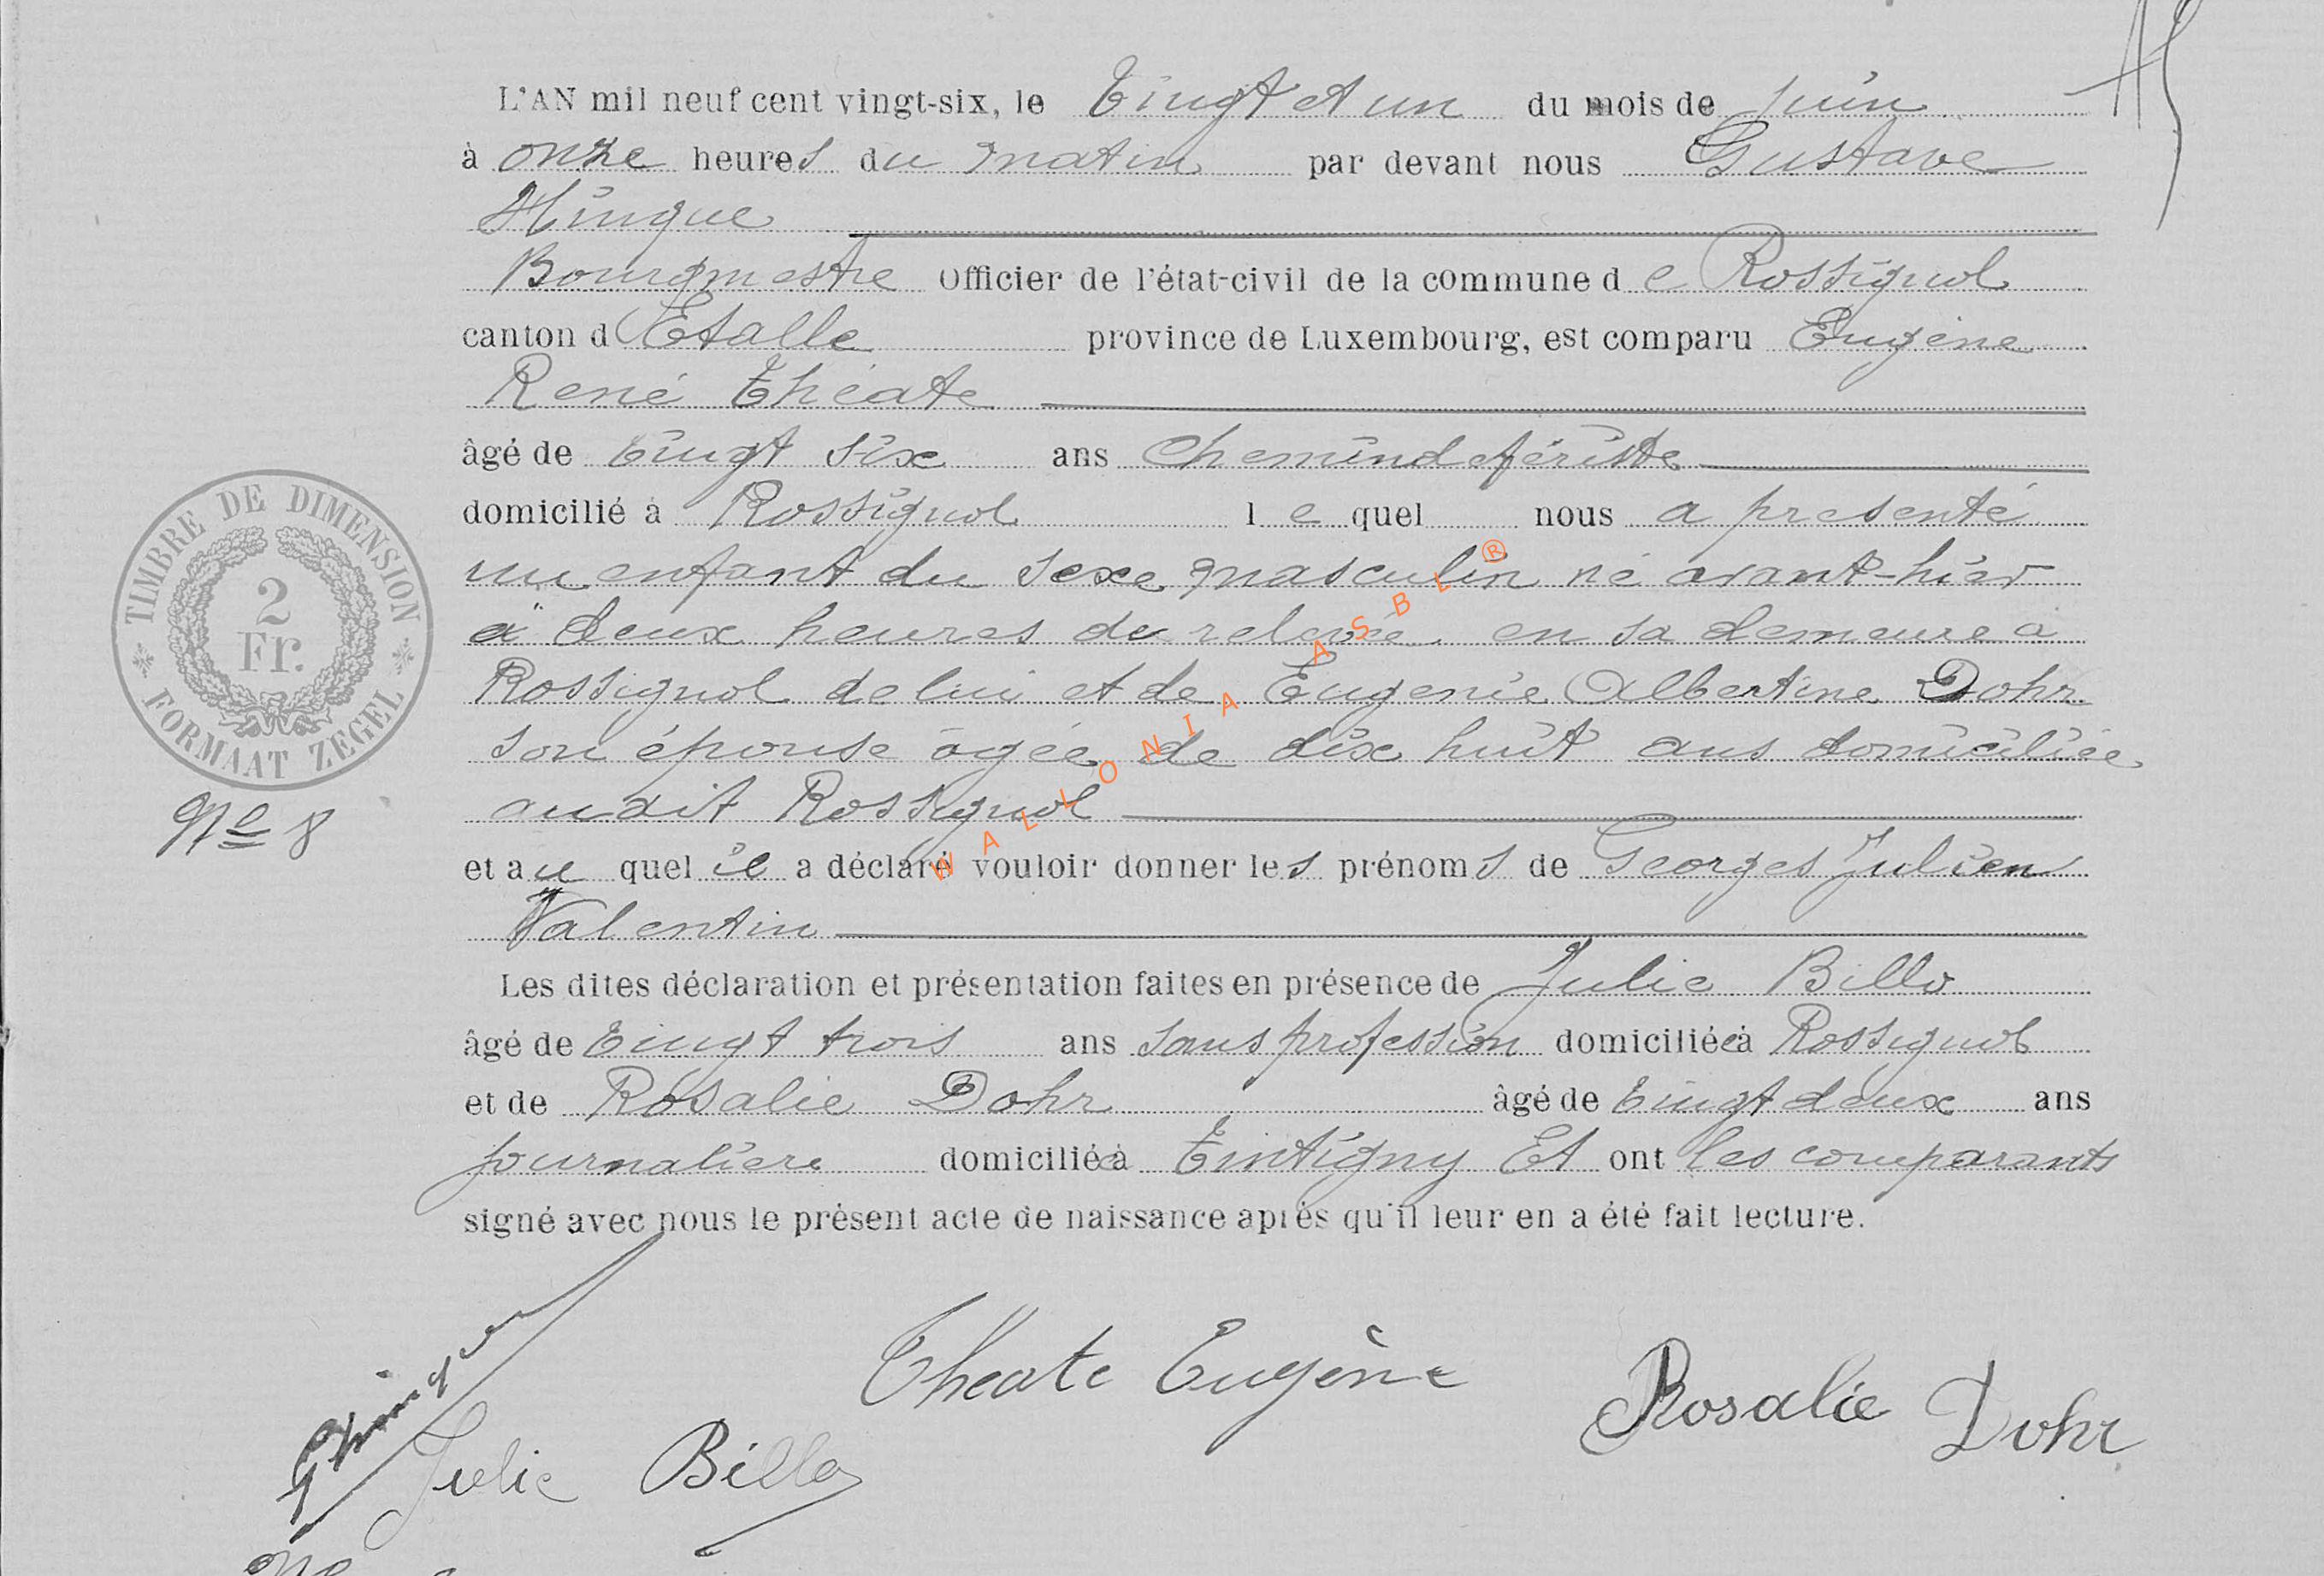 L'AN mil neuf cent vingt-six, le Vingt et un du mois de Juin
à onze heures du matin par devant nous Gustave
Hinque
Bourgmestre Officier de l'état-civil de la commune de Rossignol
canton d'Etalle province de Luxembourg, est comparu Eugène
René Théate
âgé de Vingt six ans Chemindefériste
domicilié à Rossignol lequel nous a presenté
un enfant du sexe masculin né avant-hier
à deux heures de relevée en sa demeure à
Rossignol de lui et de Eugenie Albertine Dohr
son épouse âgée de dix huit ans domiciliée
audit Rossignol
et auquel il a déclaré vouloir donner les prénoms de Georges Julien
Valentin
Les dites déclaration et présentation faites en présence de Julie Billo
âgé de Vingt trois ans sans profession domiciliée à Rossignol
et de Rosalie Dohr âgé de Vingt deux ans
journalière domiciliée à Tintigny Et ont les comparants
signé avec nous le présent acte de naissance après qu'il leur en a été fait lecture.
TIMBRE DE DIMENSION
2
Fr.
FORMAAT ZEGEL
No 8
WALLONIA ASBL ®
Theate Eugène
Rosalie Dohr
G Hinque
Julie Billo